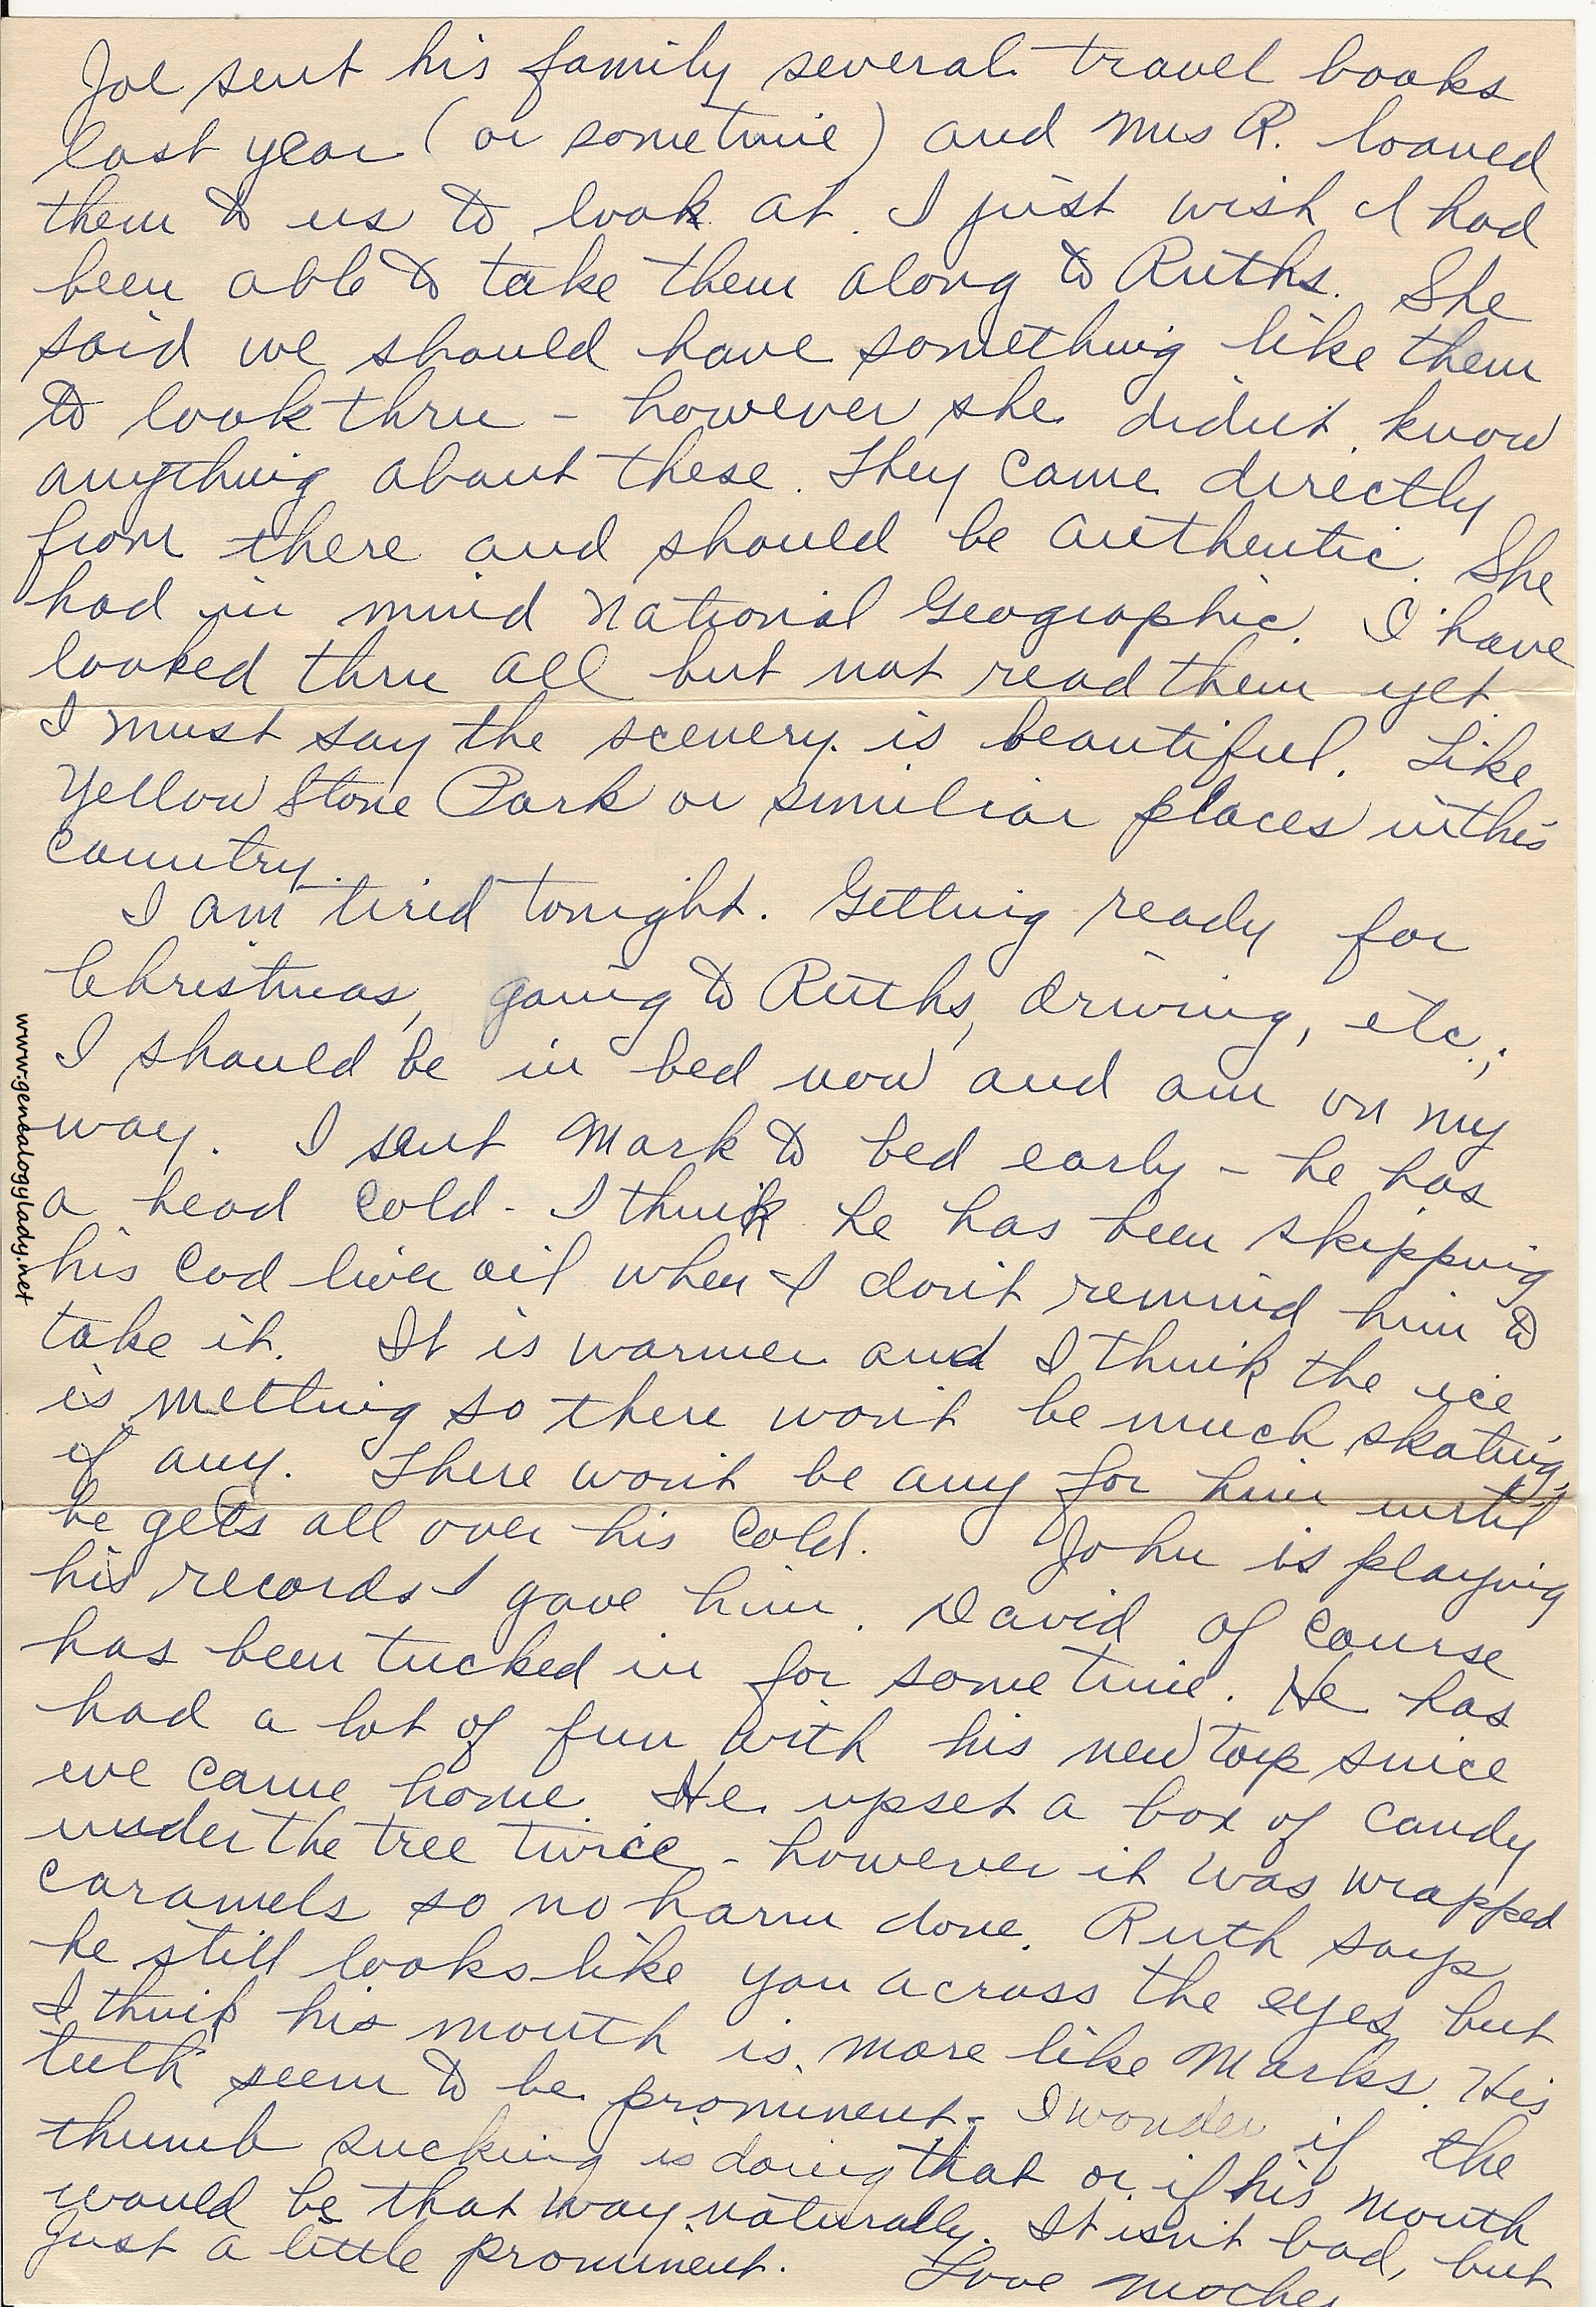 Joe sent his family several travel books
last year (or sometime) and Mrs R. loaned
them to us to look at. I just wish I had
been able to take them along to Ruths. She
said we should have something like them
to look thru - however she didn't know
anything about these. They came directly
from there and should be authentic. She
had in mind National Geographic. I have
looked thru all but not read them yet
I must say the scenery is beautiful. Like
Yellow Stone Park or similiar places in this
country.
I am tired tonight. Getting ready for
Christmas, going to Ruths, driving, etc.;
I should be in bed now and am on my
way. I sent Mark to bed early - he has
a head cold - I think he has been skipping
his cod liver oil when I don't remind him to
take it. It is warmer and I think the ice
is melting so there won't be much skating,
if any. There won't be any for him until
he gets all over his cold. John is playing
his records I gave him. David of course
has been tucked in for some time. He has
had a lot of fun with his new top since
we came home. He upset a box of candy
under the tree twice - however it was wrapped
caramels so no harm done. Ruth says
he still looks like you across the eyes but
I think his mouth is more like Marks. His
teeth seem to be prominent - I wonder if the
thumb sucking is doing that or if his mouth
would be that way naturally. It isn't bad, but
just a little prominent.
Love Mother
www.genealogylady.net